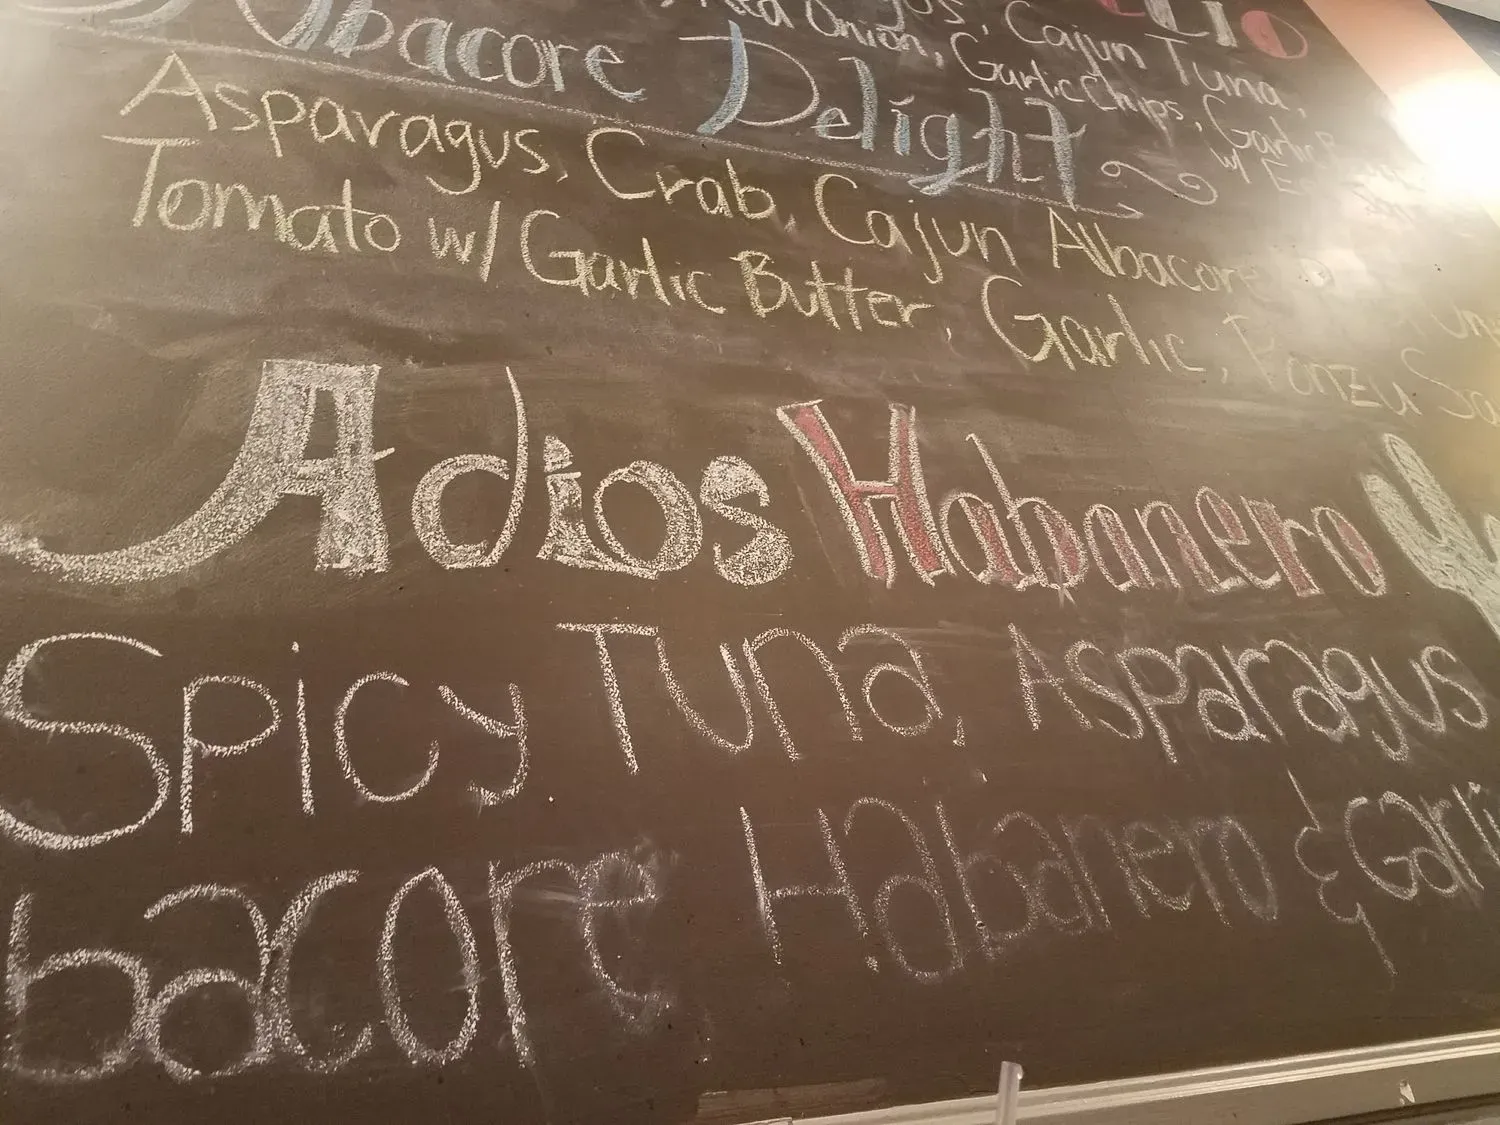 Cajun Tuna,
Red Onion, Garlic Chips, Garlic
w/
Albacore Delight
Asparagus, Crab, Cajun Albacore
Tomato w/ Garlic Butter, Garlic, Ponzu
Adios Habanero
Spicy Tuna, Asparagus
bacore Habanero & Garli